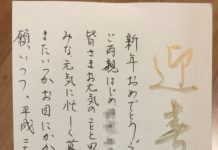 迎春
新年おめでとうご
ご両親はじめ
皆さまお元気のことと思
みな元気に忙しく暮
またいつかお目にかか
願いつつ・平成二十